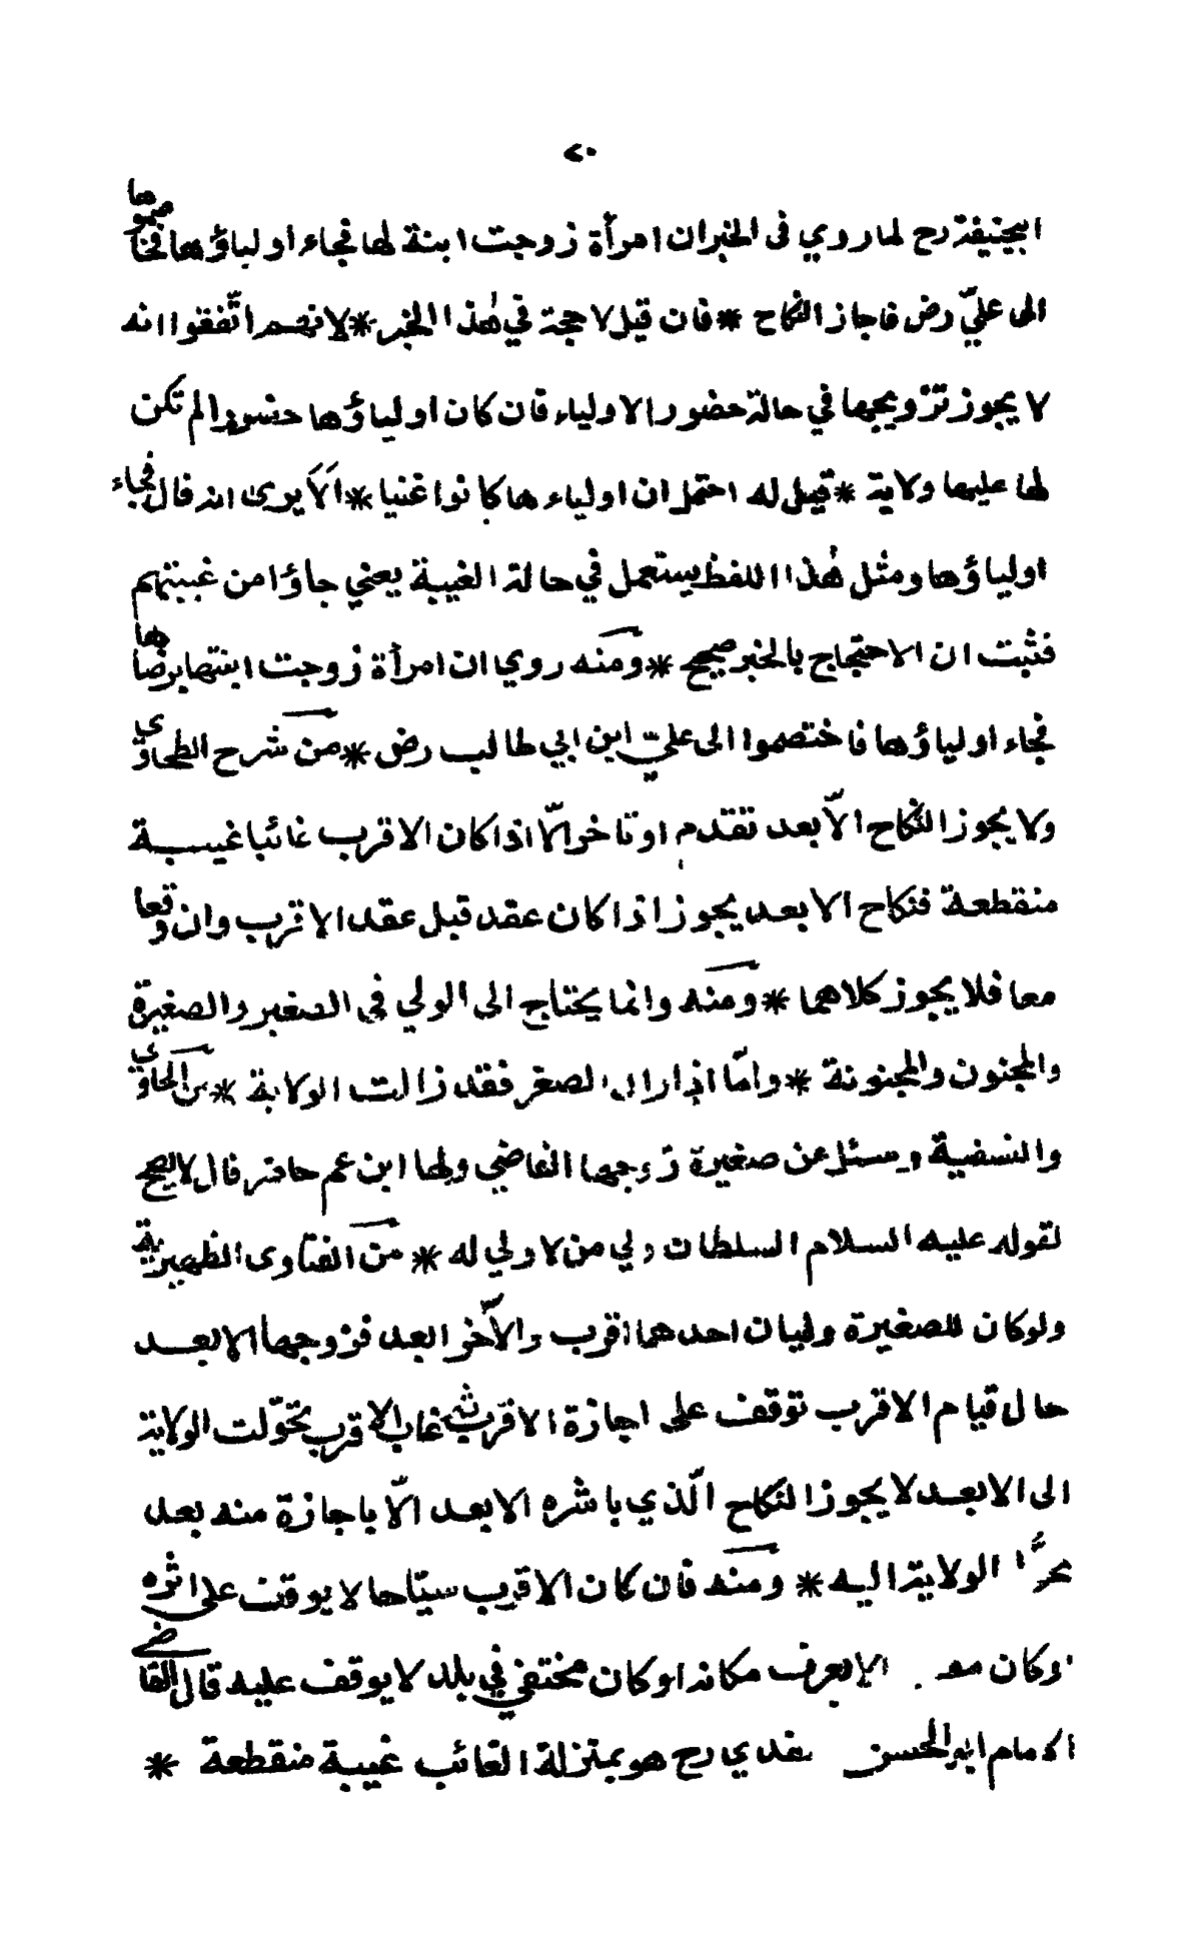 ٢٠
ابيحنيفة رح لما روي فى الخبر ان امرأة زوجت ابنة لها فجاء اولياؤها فخاصموها
الى عليّ رض فاجاز النكاح * فان قيل لا حجة في هٰذا الخبر * لانهم اتّفقوا انه
لا يجوز تزويجها في حالة حضور الاولياء فان كان اولياؤها حضورا لم تكن
لها عليها ولاية * قيل له احتمل ان اولياءها كانوا غنيا * اَلَا يرى انه قال فجاء
اولياؤها ومثل هٰذا اللفظ يستعمل في حالة الغيبة يعني جاؤا من غيبتهم
فثبت ان الاحتجاج بالخبر صحيح * ومنه روي ان امرأة زوجت ابنتها برضاها
فجاء اولياؤها فاختصموا الى عليّ ابن ابي طالب رض * من شرح الطحاوي
ولا يجوز النكاح الاّبعد تقدم او تاخر الاّ اذا كان الاقرب غائبا غيبة
منقطعة فنكاح الابعد يجوز اذا كان عقد قبل عقد الاقرب وان وقعا
معا فلا يجوز كلاهما * ومنه وانما يحتاج الى الولي في الصغير والصغيرة
والمجنون والمجنونة * وامّا اذا زال الصغر فقد زالت الولاية * من الحاوي
والنسفية وسئل عن صغيرة زوجها القاضي ولها ابن عم حاضر قال لا يصح
لقوله عليه السلام السلطان ولي من لا ولي له * من الفتاوى الظهيرية
ولو كان للصغيرة وليان احدهما اقرب والآخر ابعد فزوجها الابعد
حال قيام الاقرب توقف على اجازة الاقرب ثم غاب الاقرب تحوّلت الولاية
الى الابعد لا يجوز النكاح الّذي باشره الابعد الّا باجازة منه بعد
الولاية اليه * ومنه فان كان الاقرب سيّاحا لا يوقف على اثره
اوكان لا يعرف مكانه اوكان مختفي في بلد لا يوقف عليه قال القاضي
الامام ابو الحسن رح هو بمنزلة الغائب غيبة منقطعة *